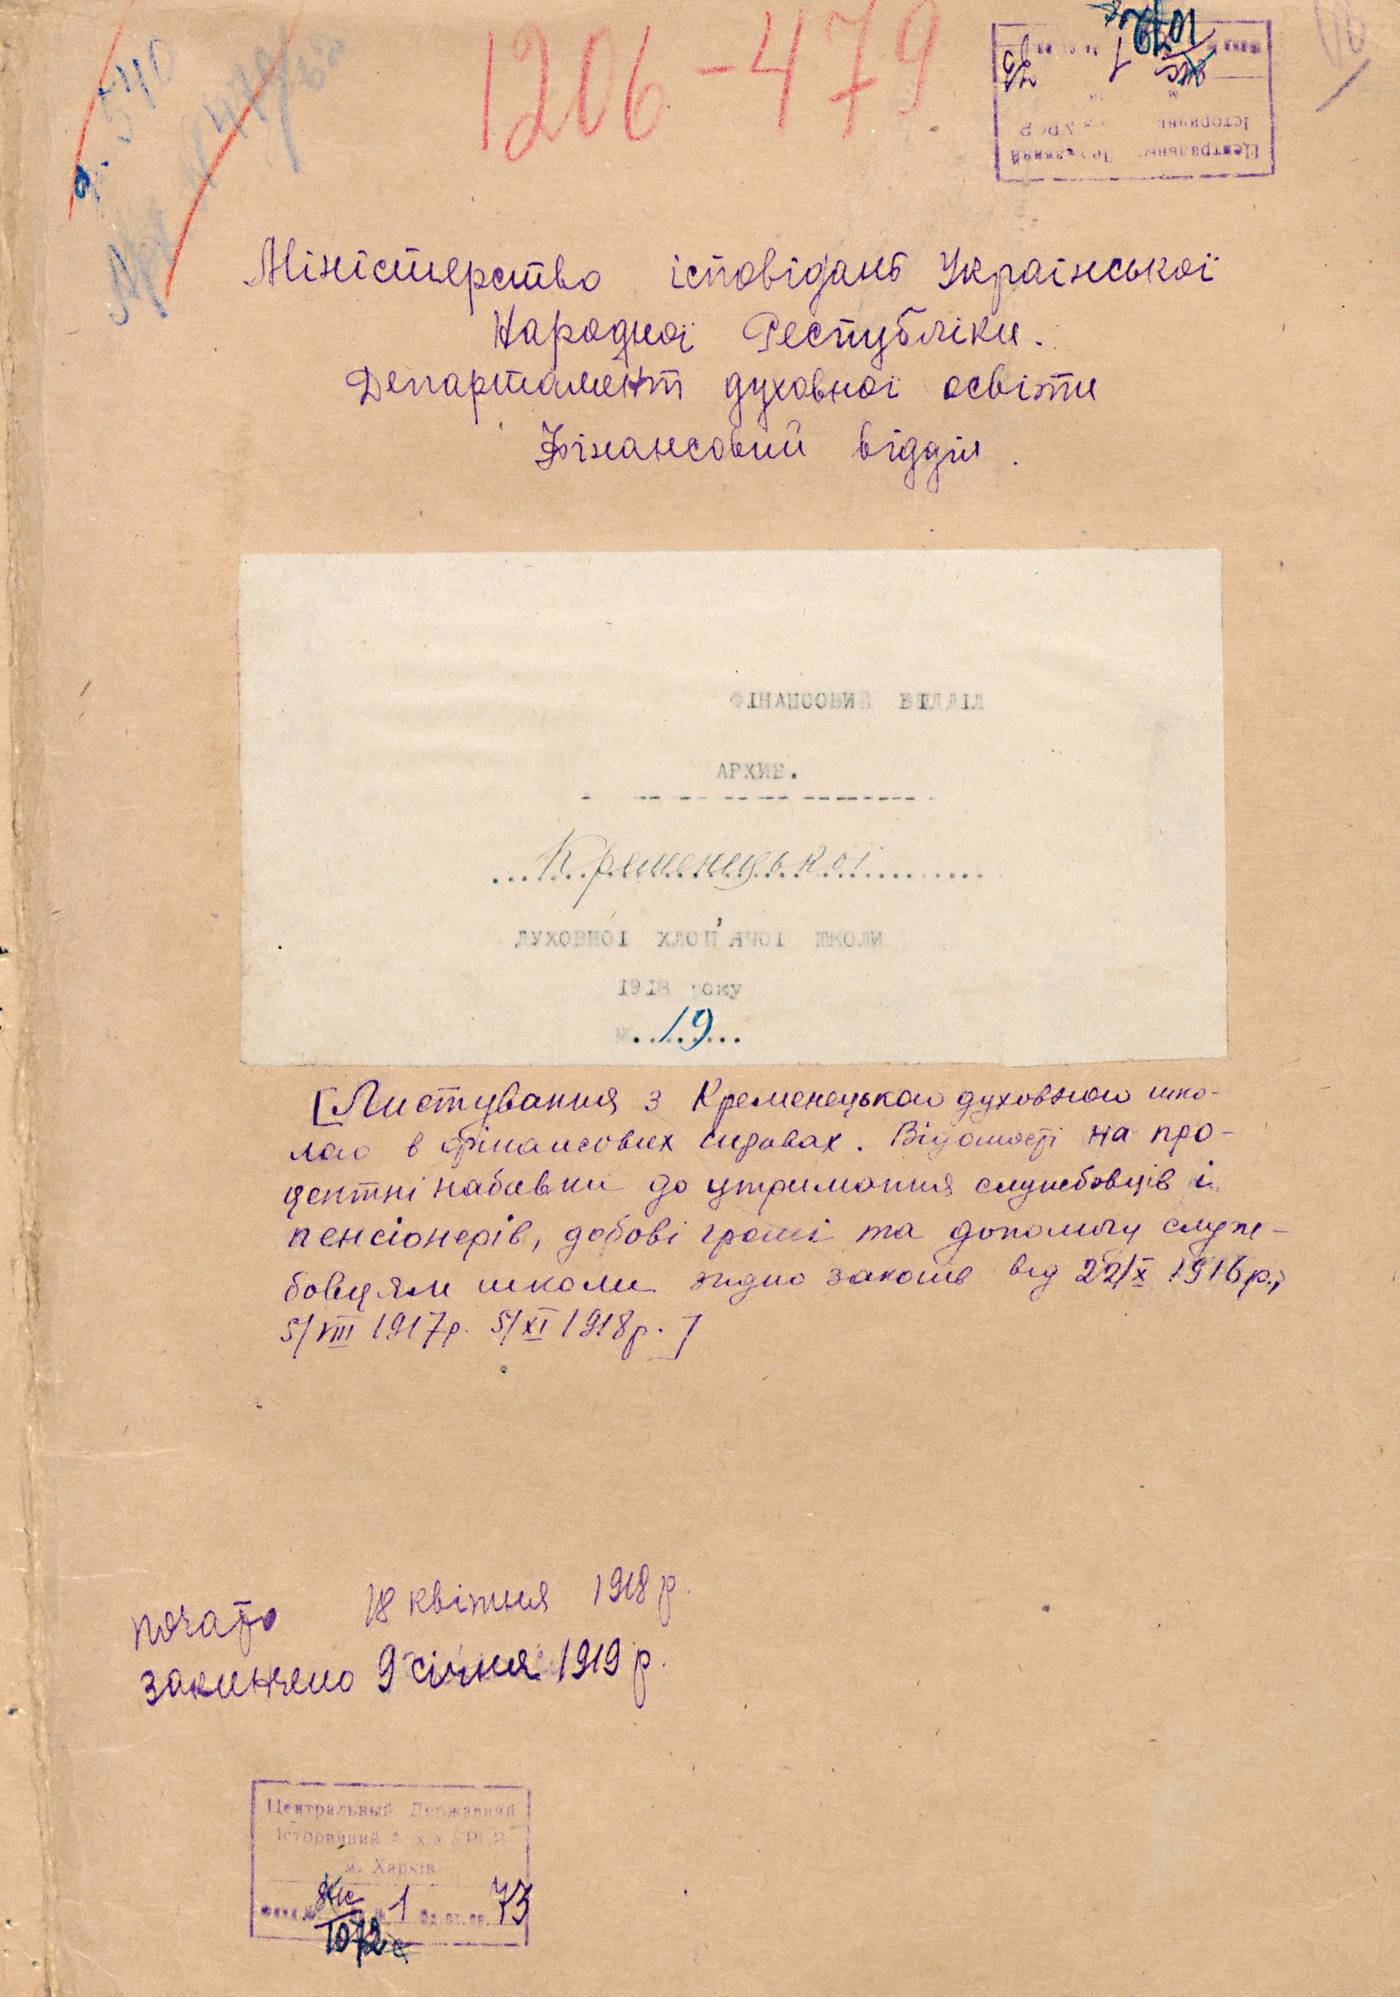 1206-479
Міністерство ісповідань Української
Народної Республіки.
Департамент духовної освіти
Фінансовий відділ.
ФІНАНСОВИЙ ВІДДІЛ
АРХИВ.
Кременецької
ДУХОВНОІ ХЛОП'ЯЧОІ ШКОЛИ
1918 року
№ 19
[Листування з Кременецькою духовною шко-
лою в фінансових справах. Відомості на про-
центні набавки до утримання службовців і
пенсіонерів, добові гроші та допомогу служ-
бовцям школи згідно законів від 22/X 1916 р.,
5/VIII 1917 р. 5/XI 1918 р.]
почато 18 квітня 1918 р.
закінчено 9 січня 1919 р.
Центральный Державний
Історичний Архів УРСР
м. Харків
Фонд № 1 Од. зб. 73
1072